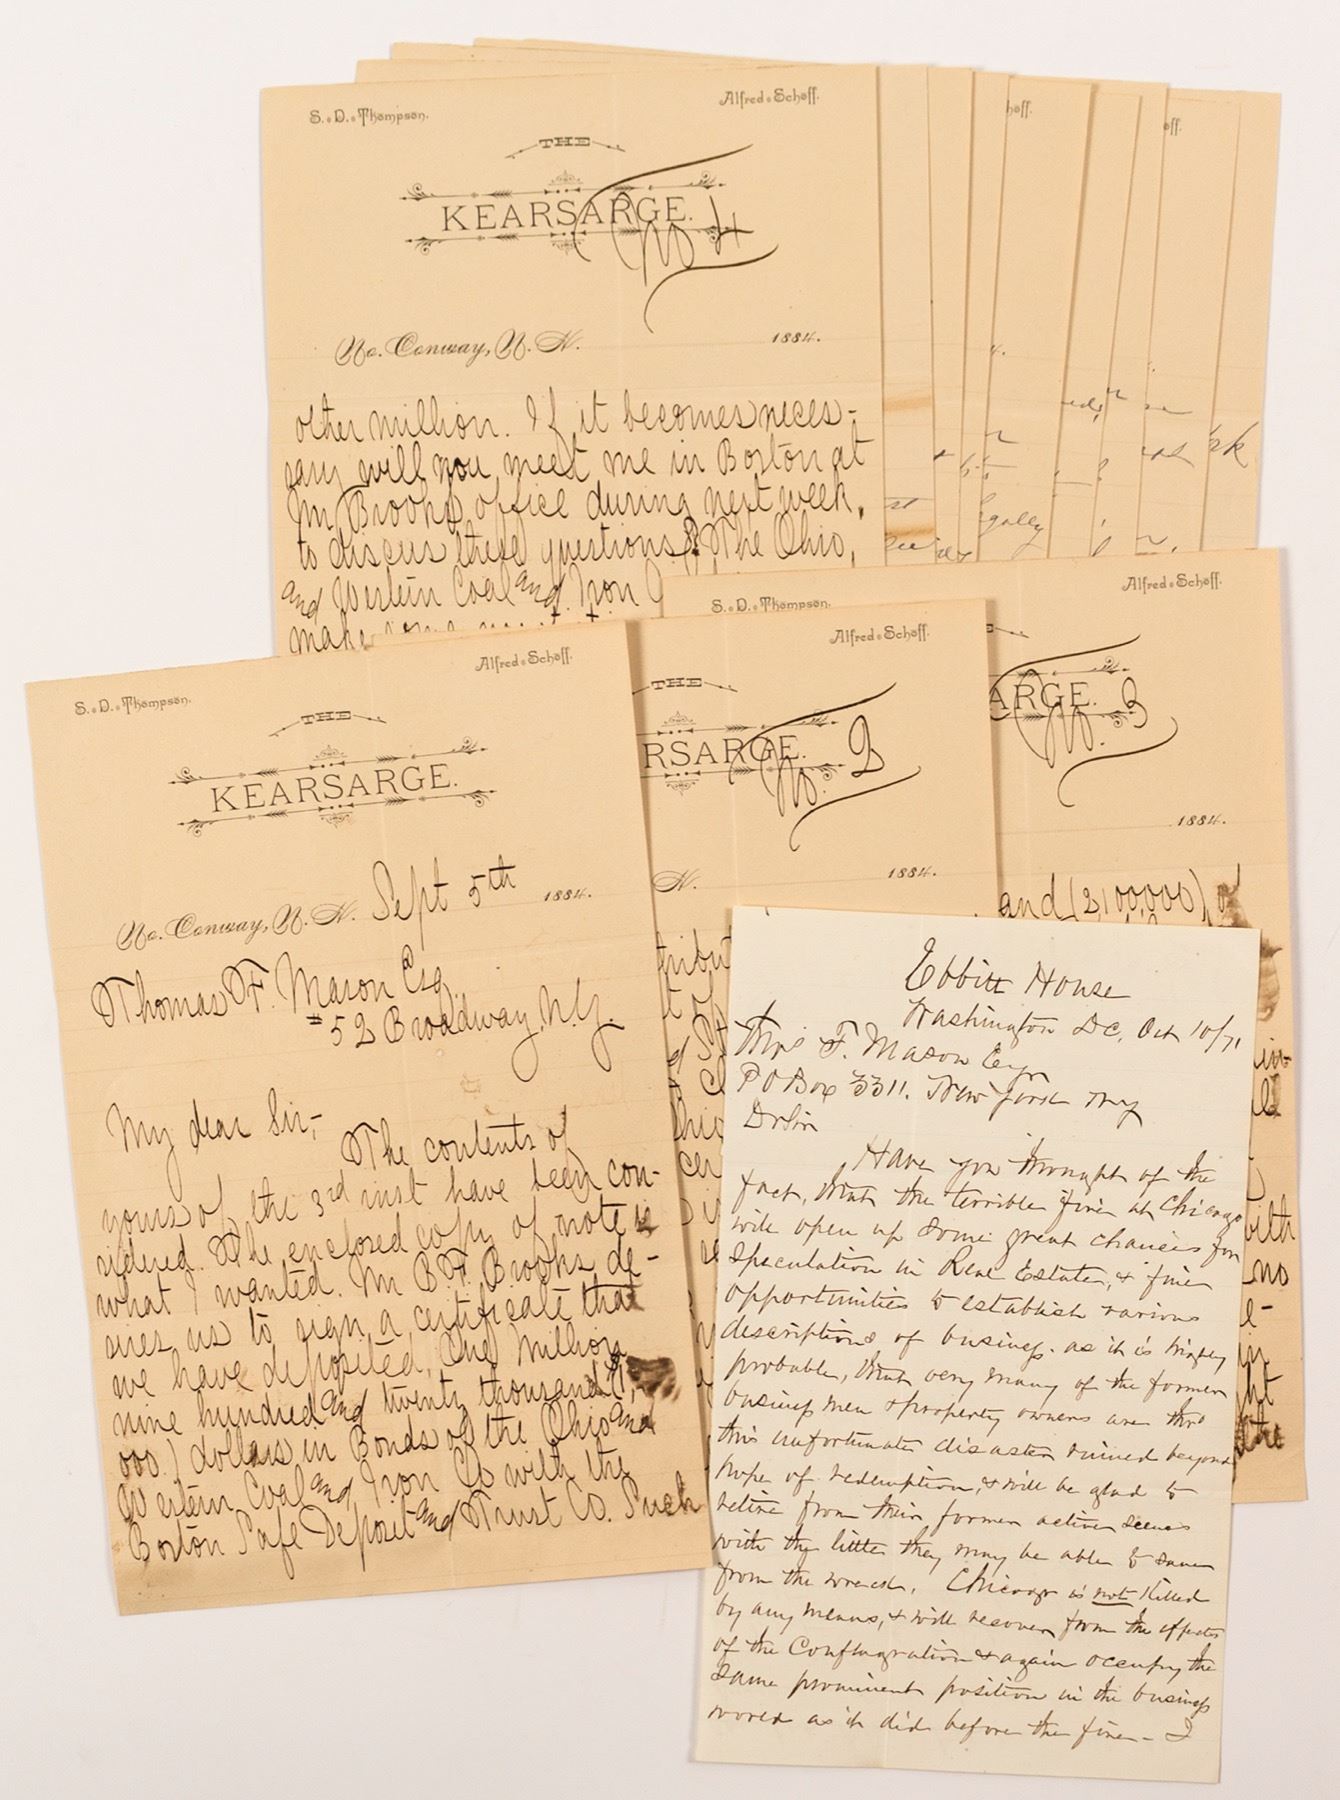 S. D. Thompson.
Alfred Schoff.
THE
KEARSARGE.
No 4
No. Conway, N. H.
1884.
other million. If it becomes neces-
sary will you meet me in Boston at
Mr Brooks office during next week,
to discuss these questions? The Ohio,
and Western Coal and Iron
make some
hoff.
off.
S. D. Thompson.
Alfred Schoff.
ARGE.
No. 3
1884.
and (2,100,000) of
Alfred Schoff.
THE
RSARGE.
No. 2
N.
1884.
S. D. Thompson.
Alfred Schoff.
THE
KEARSARGE.
No. Conway, N. H. Sept 5th 1884.
Thomas F. Mason Esq
#52 Broadway N.Y.
My dear Sir,-
The contents of
yours of the 3rd inst have been con-
sidered. The enclosed copy of note is
what I wanted. Mr B. F. Brooks de-
sires us to sign a certificate that
we have deposited, One Million
nine hundred and twenty thousand
000.) dollars in Bonds of the Ohio and
Western Coal and Iron Co with the
Boston Safe Deposit and Trust Co. Such
Ebbitt House
Washington DC, Oct 10/71
Thos F. Mason Esqr
PO Box 3311. New York NY
Dr Sir
Have you thought of the
fact, that the terrible fire at Chicago
will open up some great chances for
speculation in Real Estate, & fine
opportunities to establish various
descriptions of business. as it is highly
probable, that very many of the former
business men & property owners are thro
this unfortunate disaster ruined beyond
hope of redemption, & will be glad to
retire from their former active scenes
with the little they may be able to save
from the wreck. Chicago is not killed
by any means, & will recover from the effects
of the Conflagration & again occupy the
same prominent position in the business
world as it did before the fire - I